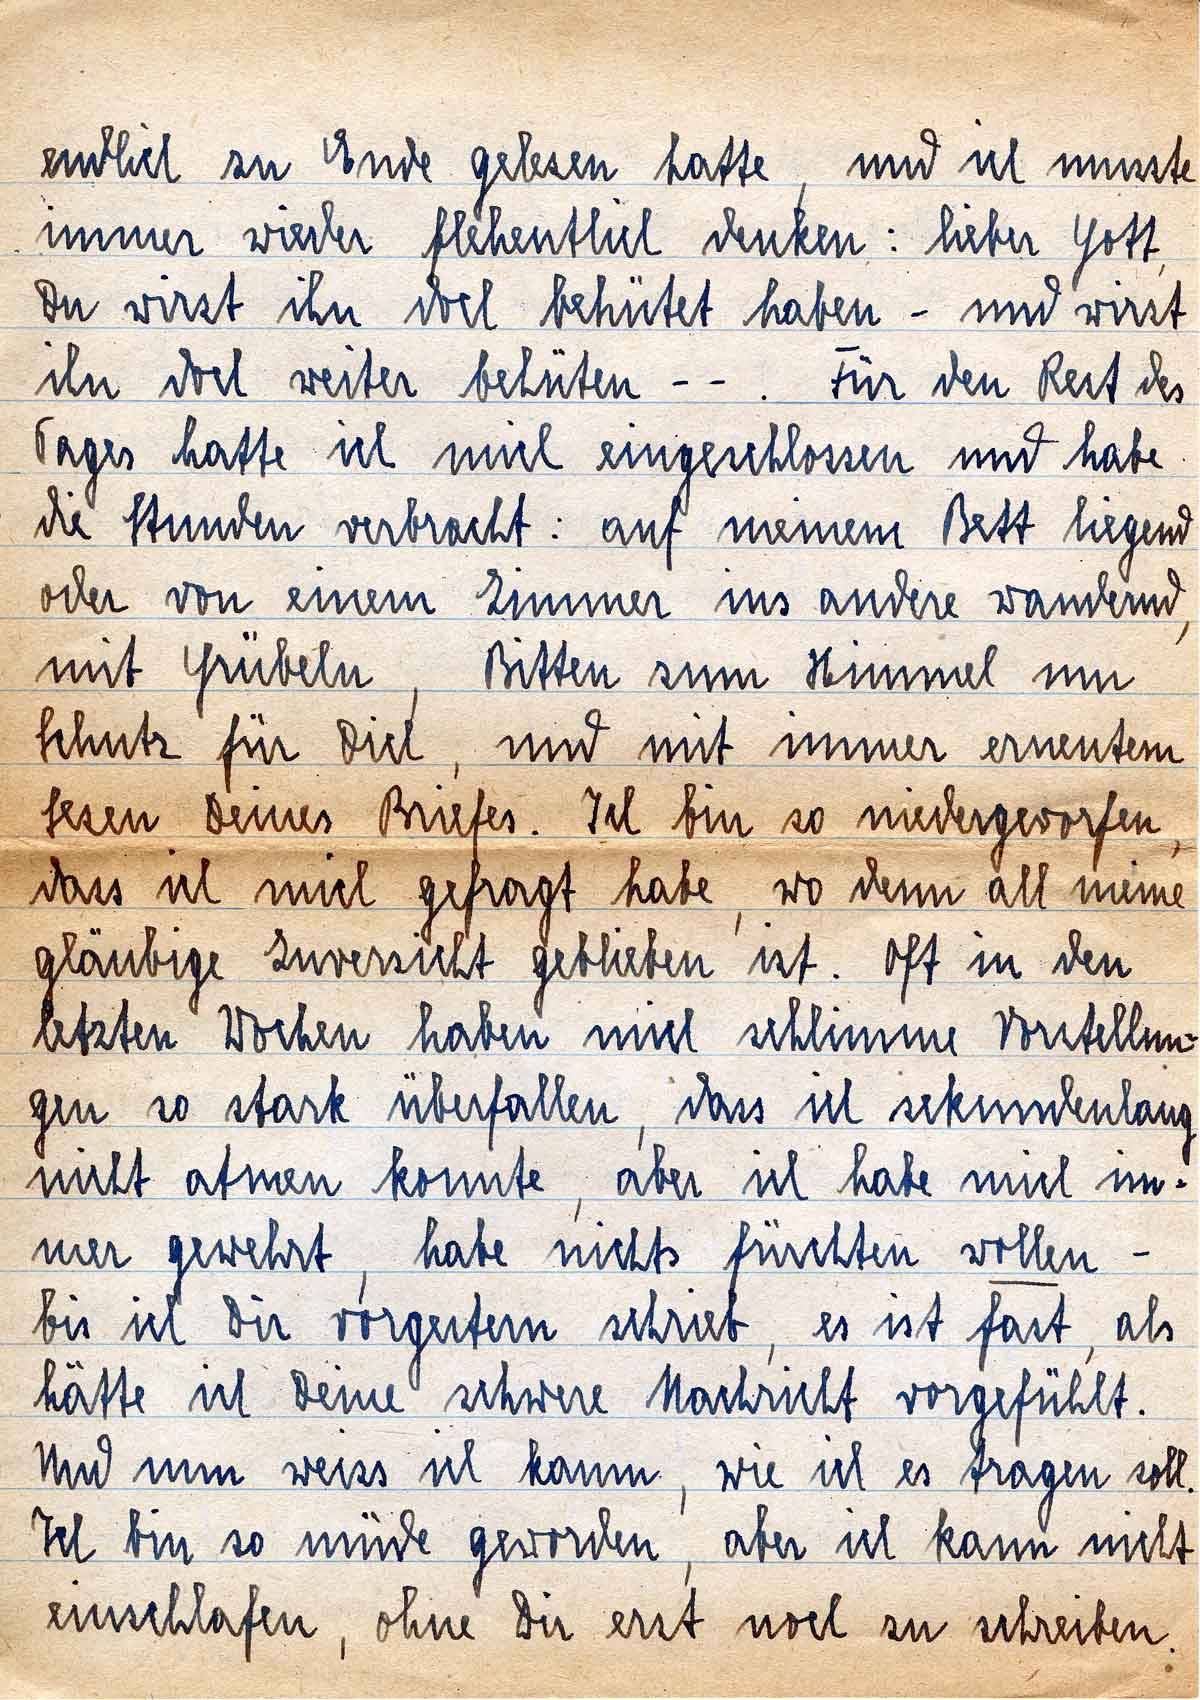 endlich zu Ende gelesen hatte, und ich musste
immer wieder flehentlich denken: lieber Gott,
Du wirst ihn doch behütet haben - und wirst
ihn doch weiter behüten --. Für den Rest des
Tages hatte ich mich eingeschlossen und habe
die Stunden verbracht: auf meinem Bett liegend
oder von einem Zimmer ins andere wandernd,
mit Grübeln, Bitten zum Himmel um
Schutz für Dich, und mit immer erneutem
Lesen Deines Briefes. Ich bin so niedergeworfen,
dass ich mich gefragt habe, wo denn all meine
gläubige Zuversicht geblieben ist. Oft in den
letzten Wochen haben mich schlimme Vorstellun-
gen so stark überfallen, dass ich sekundenlang
nicht atmen konnte, aber ich habe mich im-
mer gewehrt, habe nichts fürchten wollen -
bis ich Dir vorgestern schrieb, es ist fast, als
hätte ich Deine schwere Nachricht vorgefühlt.
Und nun weiss ich kaum, wie ich es tragen soll.
Ich bin so müde geworden, aber ich kann nicht
einschlafen, ohne Dir erst noch zu schreiben.